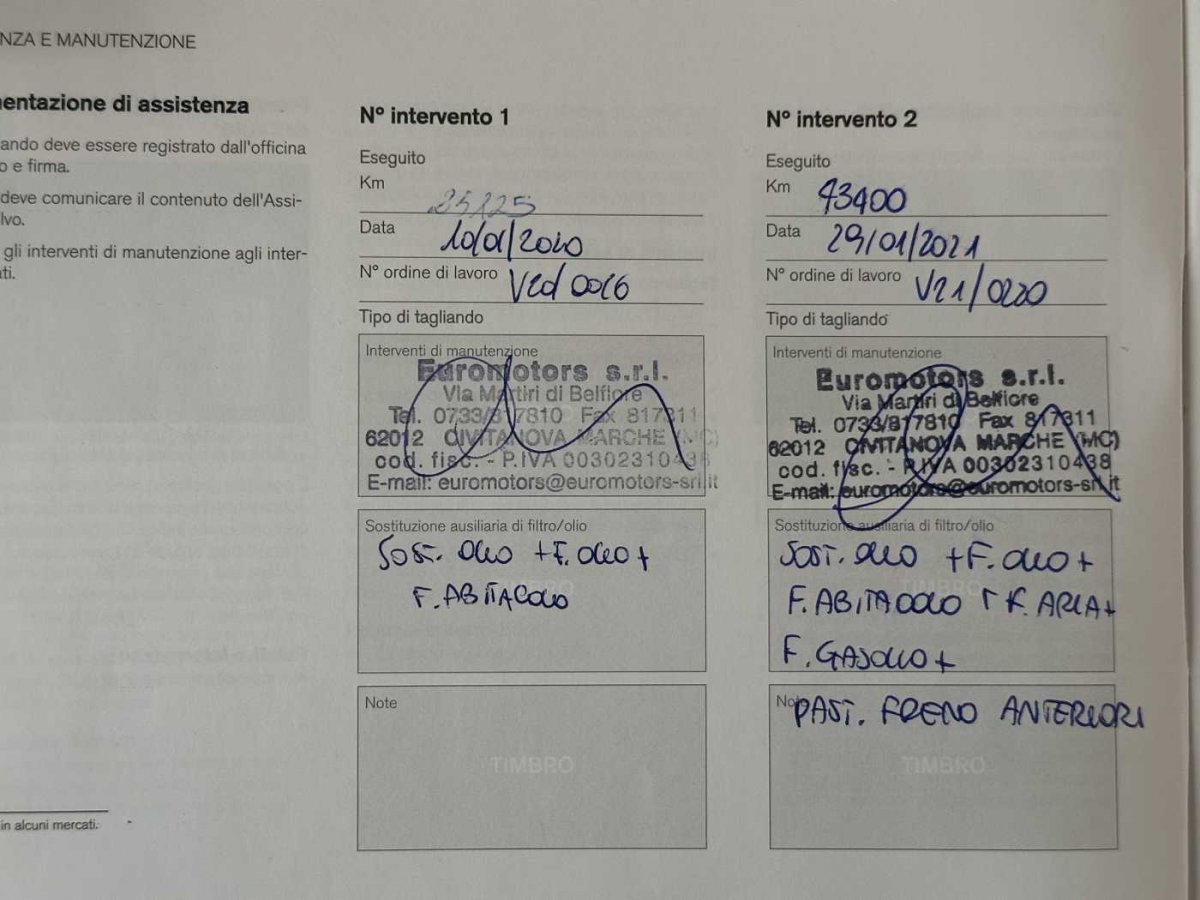 NZA E MANUTENZIONE
entazione di assistenza
ando deve essere registrato dall'officina
o e firma.
deve comunicare il contenuto dell'Assi-
lvo.
gli interventi di manutenzione agli inter-
ti.
in alcuni mercati.
N° intervento 1
Eseguito
Km
Data 10/01/2020
N° ordine di lavoro
Tipo di tagliando
Interventi di manutenzione
Euromotors s.r.l.
Via Martiri di Belfiore
Tel. 0733/817810 Fax 817311
62012 CIVITANOVA MARCHE (MC)
cod. fisc. - P.IVA 00302310438
E-mail: euromotors@euromotors-srl.it
Sostituzione ausiliaria di filtro/olio
SOST. OLIO + F. OLIO +
F. ABITACOLO
Note
TIMBRO
N° intervento 2
Eseguito
Km 43400
Data 29/01/2021
N° ordine di lavoro V21/0220
Tipo di tagliando
Interventi di manutenzione
Euromotors s.r.l.
Via Martiri di Belfiore
Tel. 0733/817810 Fax 817311
62012 CIVITANOVA MARCHE (MC)
cod. fisc. - P.IVA 00302310438
E-mail: euromotors@euromotors-srl.it
Sostituzione ausiliaria di filtro/olio
SOST. OLIO + F. OLIO +
TIMBRO
F. ABITACOLO + F. ARIA +
F. GASOLIO +
Note
PAST. FRENO ANTERIORI
TIMBRO